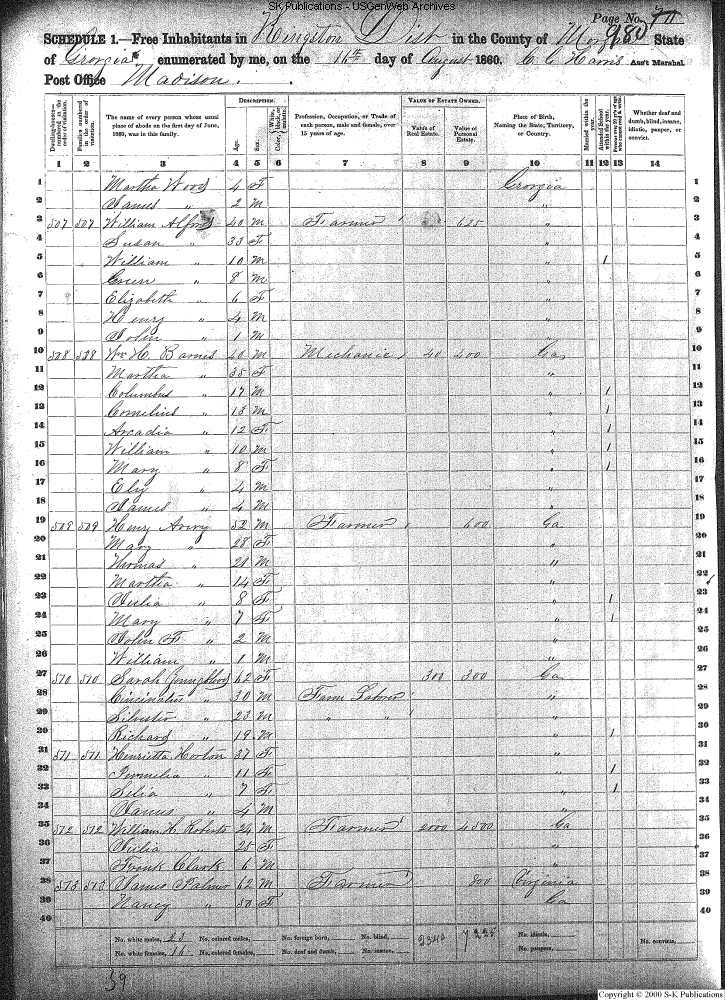 SK Publications - USGenWeb Archives
Page No. 980
SCHEDULE 1.—Free Inhabitants in Kingston Dist in the County of State
of Georgia enumerated by me, on the 16th day of August 1860. C. C. Harris Ass't Marshal.
Post Office Madison.
Dwelling-houses— numbered in the order of visitation.
Families numbered in the order of visitation.
The name of every person whose usual place of abode on the first day of June, 1860, was in this family.
DESCRIPTION.
Age.
Sex.
Color, White, black, or mulatto.
Profession, Occupation, or Trade of each person, male and female, over 15 years of age.
VALUE OF ESTATE OWNED.
Value of Real Estate.
Value of Personal Estate.
Place of Birth, Naming the State, Territory, or Country.
Married within the year.
Attended School within the year.
Whether deaf and dumb, blind, insane, idiotic, pauper, or convict.
1 2 3 4 5 6 7 8 9 10 11 12 13 14
1 Martha Wood 4 F Georgia 1
2 James " 2 M " 2
3 507 507 William Alford 40 M Farmer 625 " 3
4 Susan " 33 F " 4
5 William " 10 M " / 5
6 Green " 8 M " 6
7 Elizabeth " 6 F " 7
8 Henry " 4 M " 8
9 John " 1 M " 9
10 508 508 Wm H. Barnes 40 M Mechanic 40 400 Ga 10
11 Martha " 35 F " 11
12 Columbus " 17 M " / 12
13 Cornelius " 13 M " / 13
14 Arcadia " 12 F " / 14
15 William " 10 M " / 15
16 Mary " 8 F " / 16
17 Ely " 4 M " 17
18 James " 4 M " 18
19 509 509 Henry Avery 52 M Farmer 400 Ga 19
20 Mary " 28 F " 20
21 Thomas " 21 M " 21
22 Martha " 14 F " 22
23 Julia " 8 F " / 23
24 Mary " 7 F " / 24
25 John F " 2 M " 25
26 William " 1 M " 26
27 510 510 Sarah Youngblood 62 F 300 300 Ga 27
28 Cincinatus " 30 M Farm Labor " 28
29 Silvester " 23 M " " " 29
30 Richard " 19 M " / 30
31 511 511 Henrietta Horton 37 F " 31
32 Permelia " 11 F " / 32
33 Selia " 7 F " / 33
34 James " 4 M " 34
35 512 512 William H. Roberts 24 M Farmer 2000 4500 Ga 35
36 Julia " 25 F " 36
37 Frank Clark 6 M " 37
38 513 513 James Palmer 62 M Farmer 800 Virginia 38
39 Nancy " 50 F Ga 39
40 40
No. white males, 23 No. colored males, No. foreign born, No. blind, 2340 7225 No. idiotic, No. convicts,
No. white females, 16 No. colored females, No. deaf and dumb, No. insane, No. paupers,
39
Copyright © 2000 S-K Publications